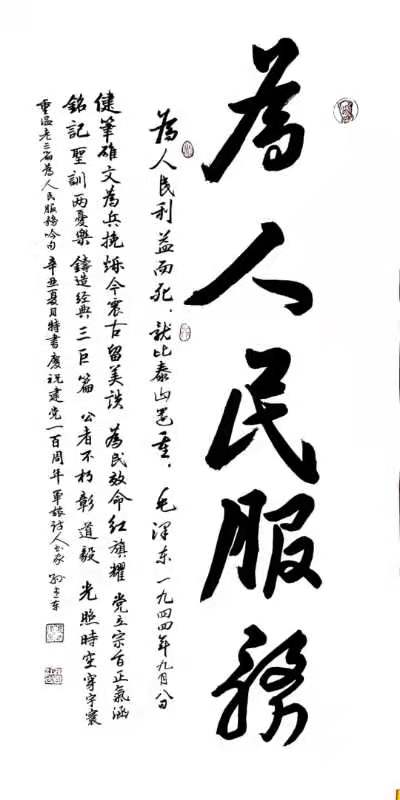 為人民服務
為人民利益而死，就比泰山還重，毛泽东一九四四年九月八日
健筆雄文為兵挽 烁今震古留美談 為民效命红旗耀 党立宗旨正氣涵
銘記聖訓两憂樂 鑄造经典三巨篇 公者不朽彰道毅 光照時空穿宇寰
重温老三篇为人民服務吟句 辛丑夏月特書慶祝建党一百周年 軍旅诗人書家